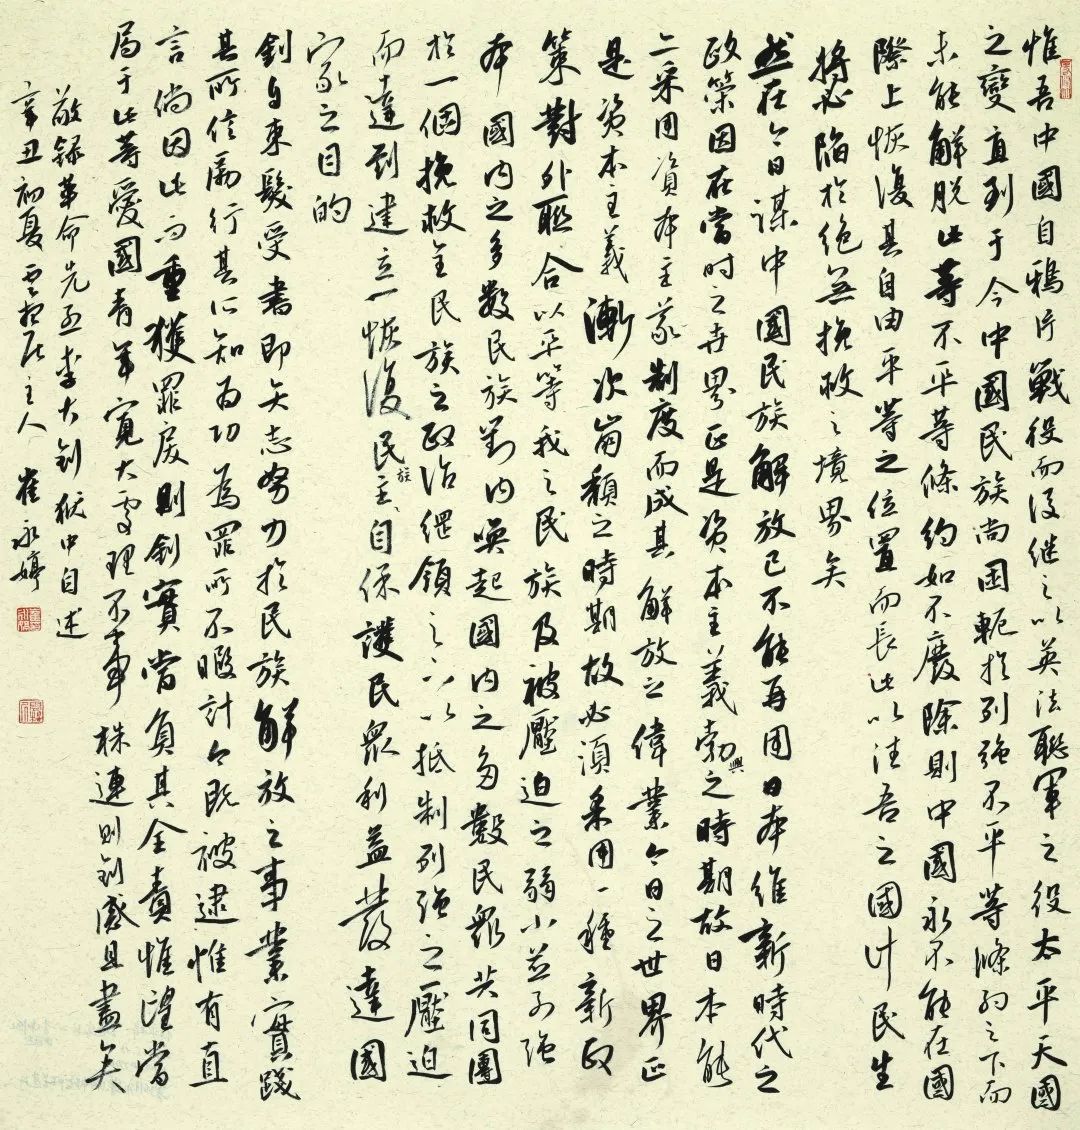 惟吾中國自鴉片戰役而後繼之以英法聯軍之役太平天國
之變直到于今中國民族尚困軛於列強不平等條約之下而
未能解脫此等不平等條約如不廢除則中國永不能在國
際上恢復其自由平等之位置而長此以往吾之國計民生
將必陷於絕無挽救之境界矣
然在今日謀中國民族解放已不能再用日本維新時代之
政策因在當時之世界正是資本主義勃興之時期故日本能
亦采用資本主義制度而成其解放之偉業今日之世界正
是資本主義漸次崩頹之時期故必須采用一種新政
策對外聯合以平等我之民族及被壓迫之弱小並列強
本國內之多數民族對內喚起國內之多數民眾共同團
於一個挽救全民族之政治綱領之下以抵制列強之壓迫
而達到建立一恢復民族主自保護民眾利益發達國
家之目的
釗自束髮受書即矢志努力於民族解放之事業實踐
其所信勵行其所知為功為罪所不暇計今既被逮惟有直
言倘因此而重獲罪戾則釗實當負其全責惟望當
局于此等愛國青年寬大處理不事株連則釗感且盡矣
敬錄革命先烈李大釗獄中自述
辛丑初夏居主人 崔永婷